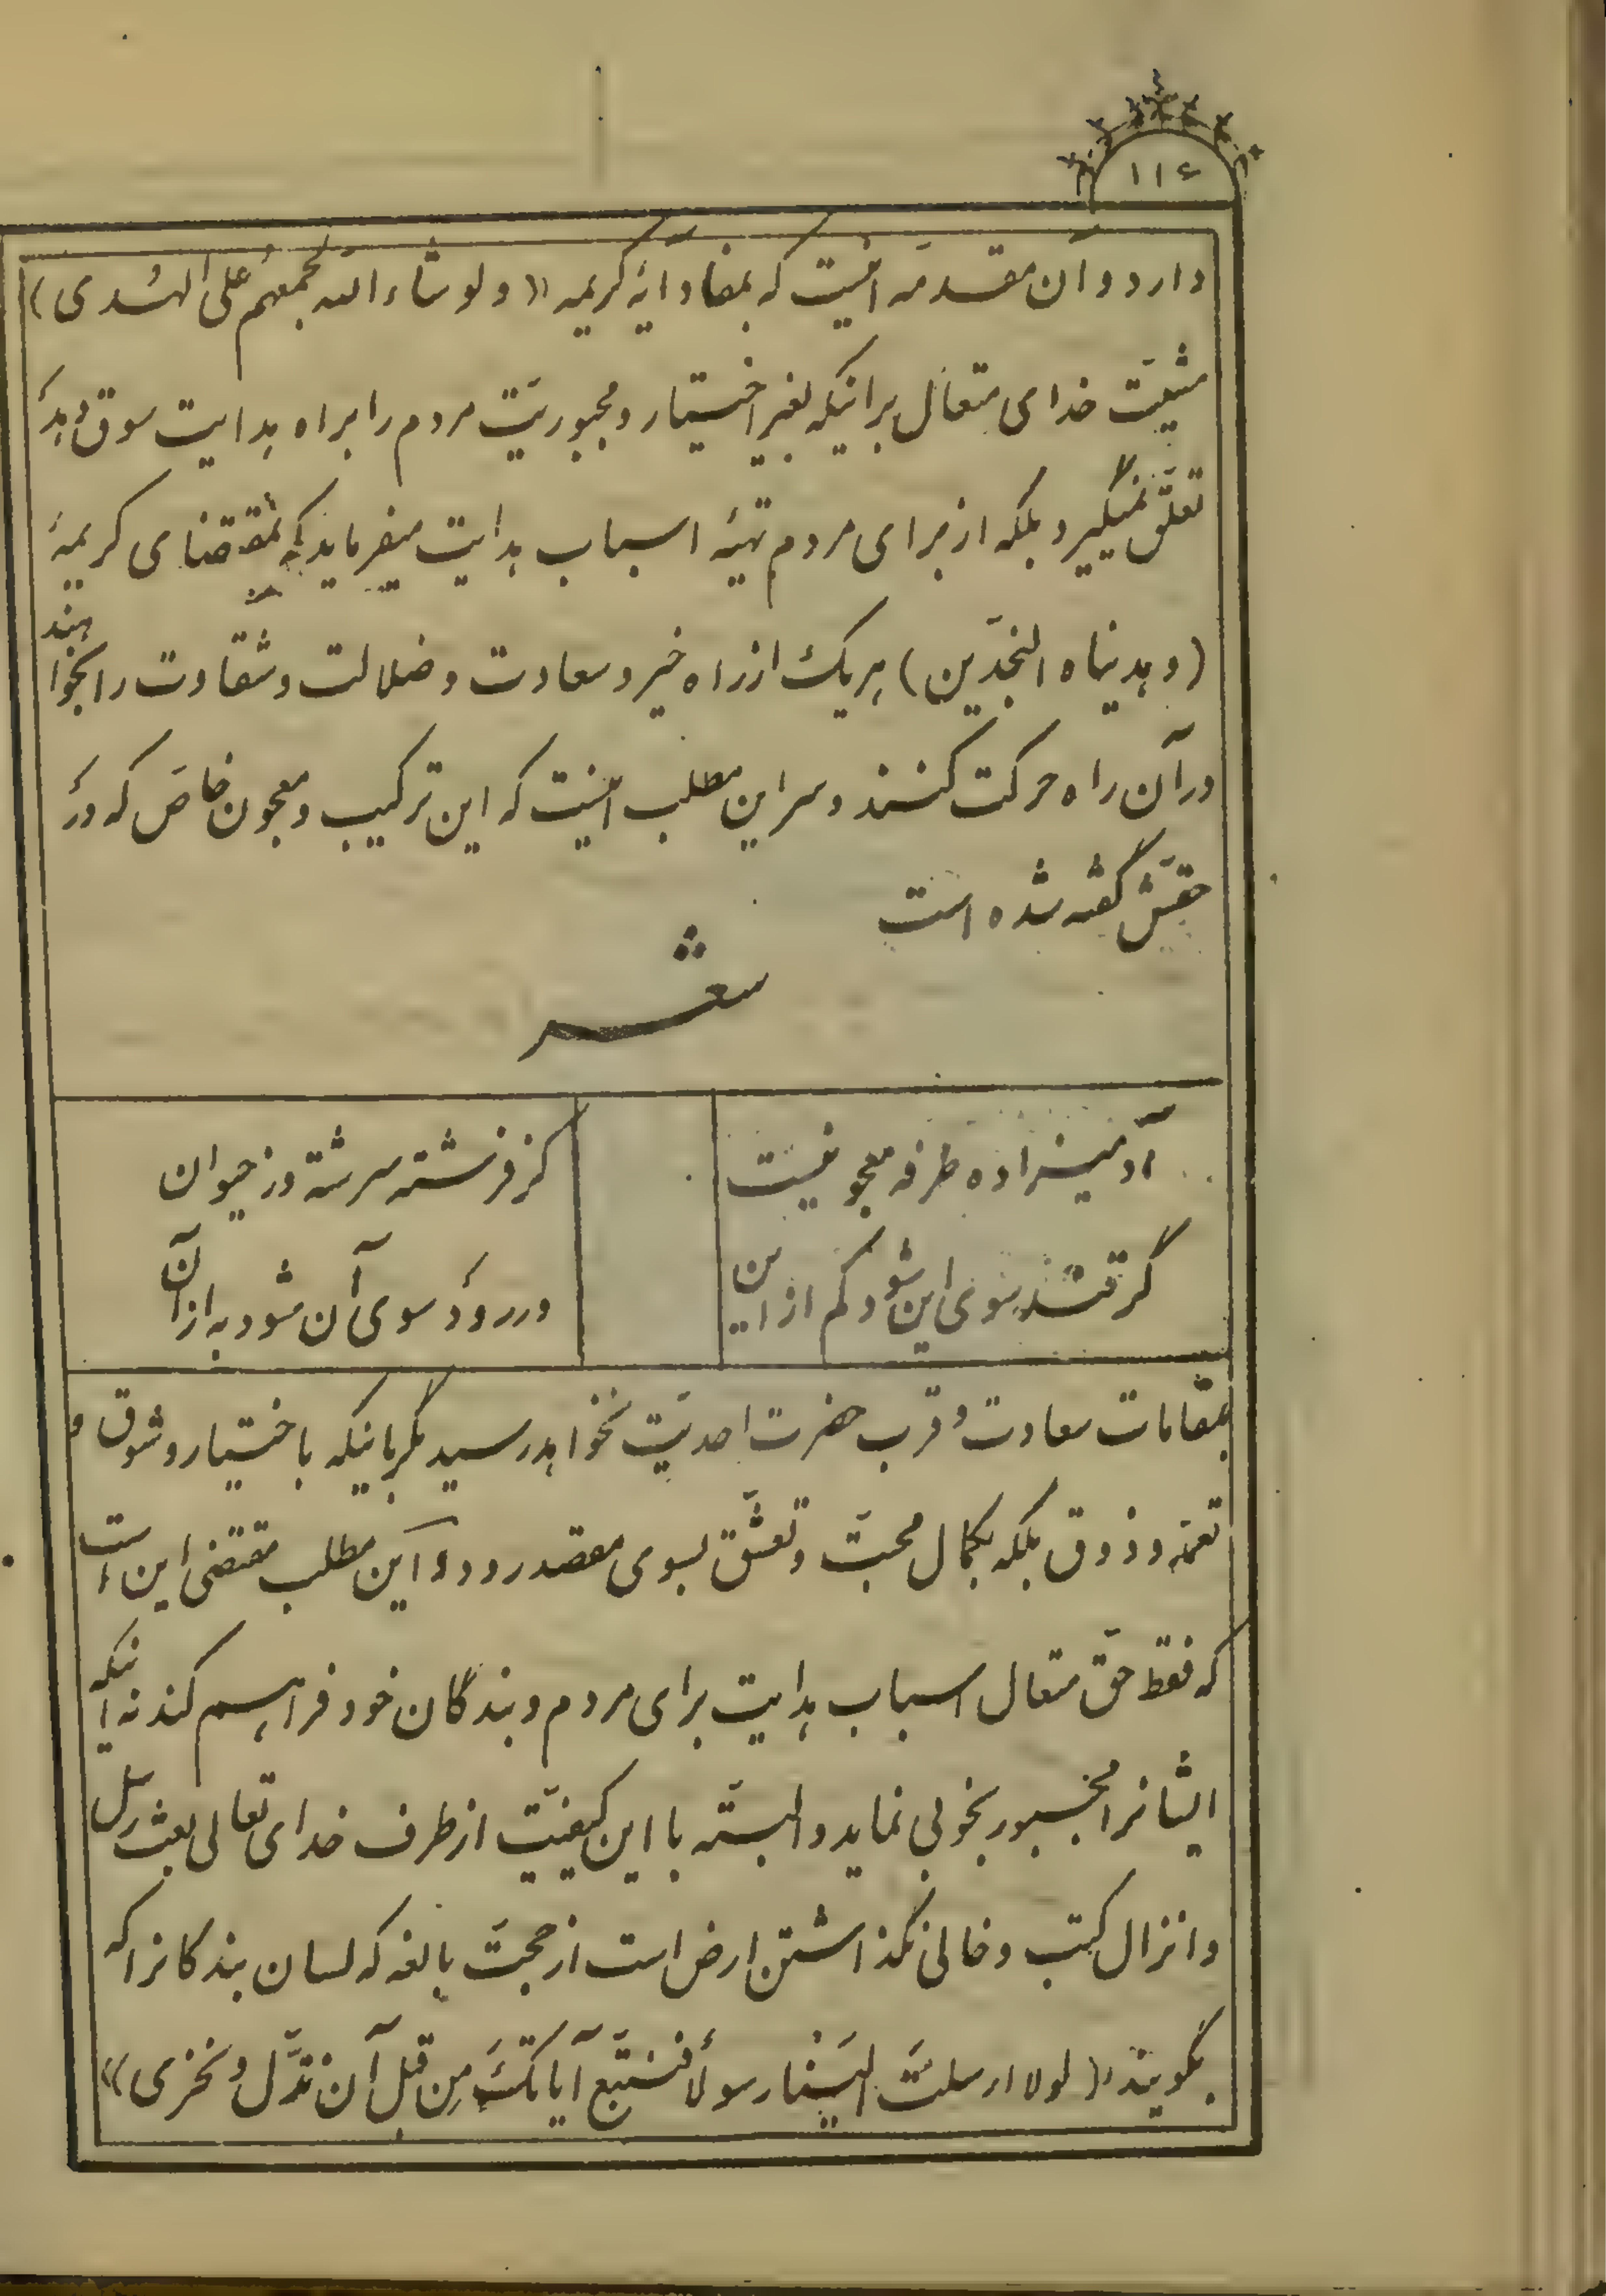 ۱۱۶
دارد و آن مقدمه اینست که بمفاد آیهٔ کریمه ((ولو شاء الله لجمعهم علی الهُدی)
مشیّت خدای متعال براینکه بغیر اختیار و مجبوریّت مردم را براه هدایت سوق دهد
تعلّق نمیگیرد بلکه از برای مردم تهیّهٔ اسباب هدایت میفرماید که بمقتضای کریمهٔ
(وهدیناه النجدَین) هر یک از راه خیر و سعادت و ضلالت و شقاوت را بخواهند
در آن راه حرکت کنند و سر این مطلب اینست که این ترکیب و معجون خاصّ که در
حقّش گفته شده است
شعر
آدمیزاده طرفه معجونیست
کز فرشته سرشته وز حیوان
گر کند سوی این شود کم از این
ور رود سوی آن شود به از آن
بمقامات سعادت و قرب حضرت احدیّت نخواهد رسید مگر باینکه باختیار و شوق و
نعمه و ذوق بلکه بکمال محبّت و تعشّق بسوی مقصد رود و این مطلب مقتضی این است
که فقط حقّ متعال اسباب هدایت برای مردم و بندگان خود فراهم کند نه اینکه
ایشانرا مجبور بخوبی نماید و البتّه با این کیفیّت از طرف خدای تعالی بعث رسل
و انزال کتب و خالی نگذاشتن ارض است از حجّت بالغه که لسان بندگانرا که
بگویند ((لولا ارسلتَ الیَنا رسولاً فنتبّع آیاتکَ مِن قبل آن نذّل و نخزی))